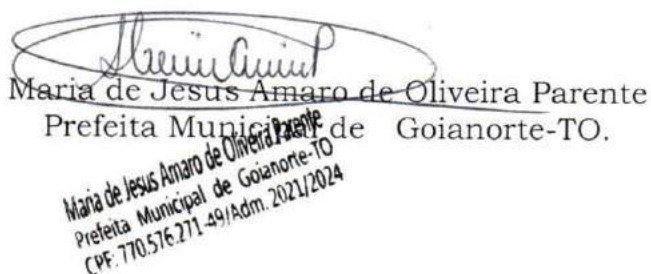 Maria de Jesus Amaro de Oliveira Parente
Prefeita Municipal de Goianorte-TO.
Maria de Jesus Amaro de Oliveira Parente
Prefeita Municipal de Goianorte-TO
CPF: 770.576.271-49/Adm. 2021/2024